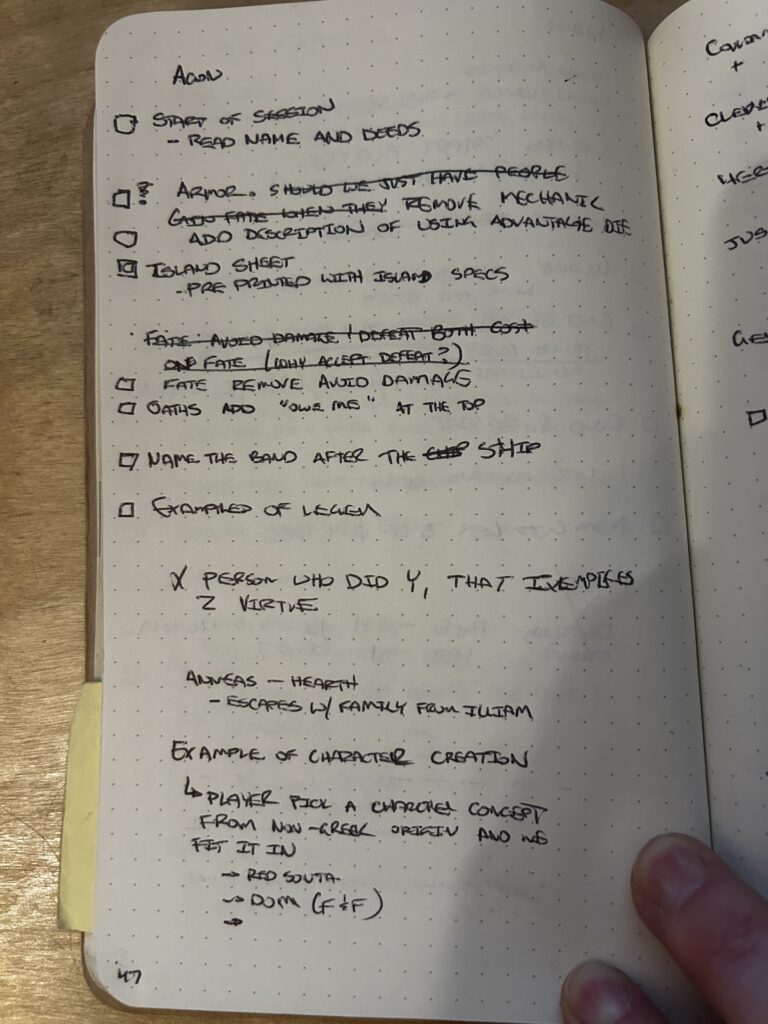 AGON
START OF SESSION
- READ NAME AND DEEDS
ARMOR. SHOULD WE JUST HAVE PEOPLE
GAIN FATE WHEN THEY REMOVE MECHANIC
ADD DESCRIPTION OF USING ADVANTAGE DIE
ISLAND SHEET
- PRE PRINTED WITH ISLAND SPECS
FATE: AVOID DAMAGE / DEFEAT BOTH COST
ONE FATE (WHY ACCEPT DEFEAT?)
FATE REMOVE AVOID DAMAGE
OATHS ADD "OWE ME" AT THE TOP
NAME THE BAND AFTER THE SHIP
OF
X PERSON WHO DID Y, THAT
Z VIRTUE
- HEARTH
- ESCAPES W/ FAMILY FROM ILLIAM
EXAMPLE OF CHARACTER CREATION
↳ PLAYER PICK A CONCEPT
FROM NON-GREEK ORIGIN AND WE
FIT IT IN
→ RED
→ DOM (F&F)
→
47
+
+